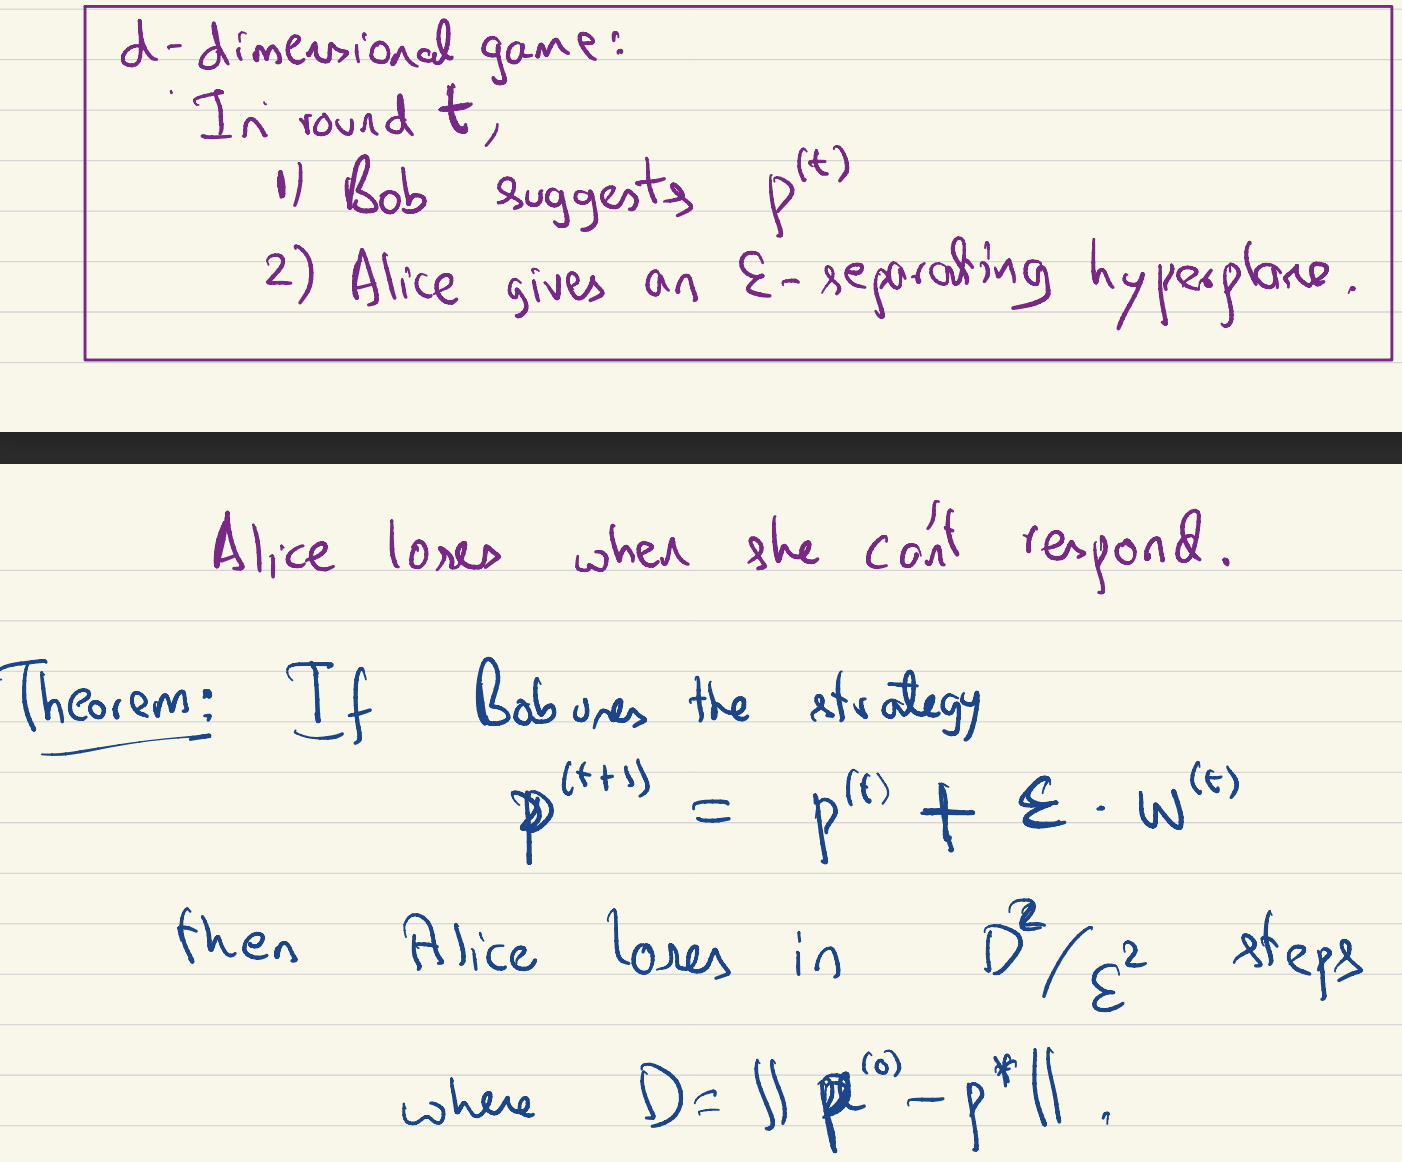 d-dimensional game:
In round t,
1) Bob suggests p^(t)
2) Alice gives an ε-separating hyperplane.
Alice loses when she can't respond.
Theorem: If Bob uses the strategy
p^(t+1) = p^(t) + ε · w^(t)
then Alice loses in D²/ε² steps
where D = || p^(0) - p* ||.